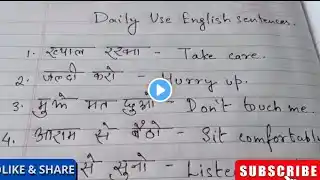 Daily Use English sentences.
1. ख्याल रखना - Take care.
2. जल्दी करो - Hurry up.
3. मुझे मत छुओ - Don't touch me.
4. आराम से बैठो - Sit comfortabl
से सुनो - Listen
LIKE & SHARE
SUBSCRIBE